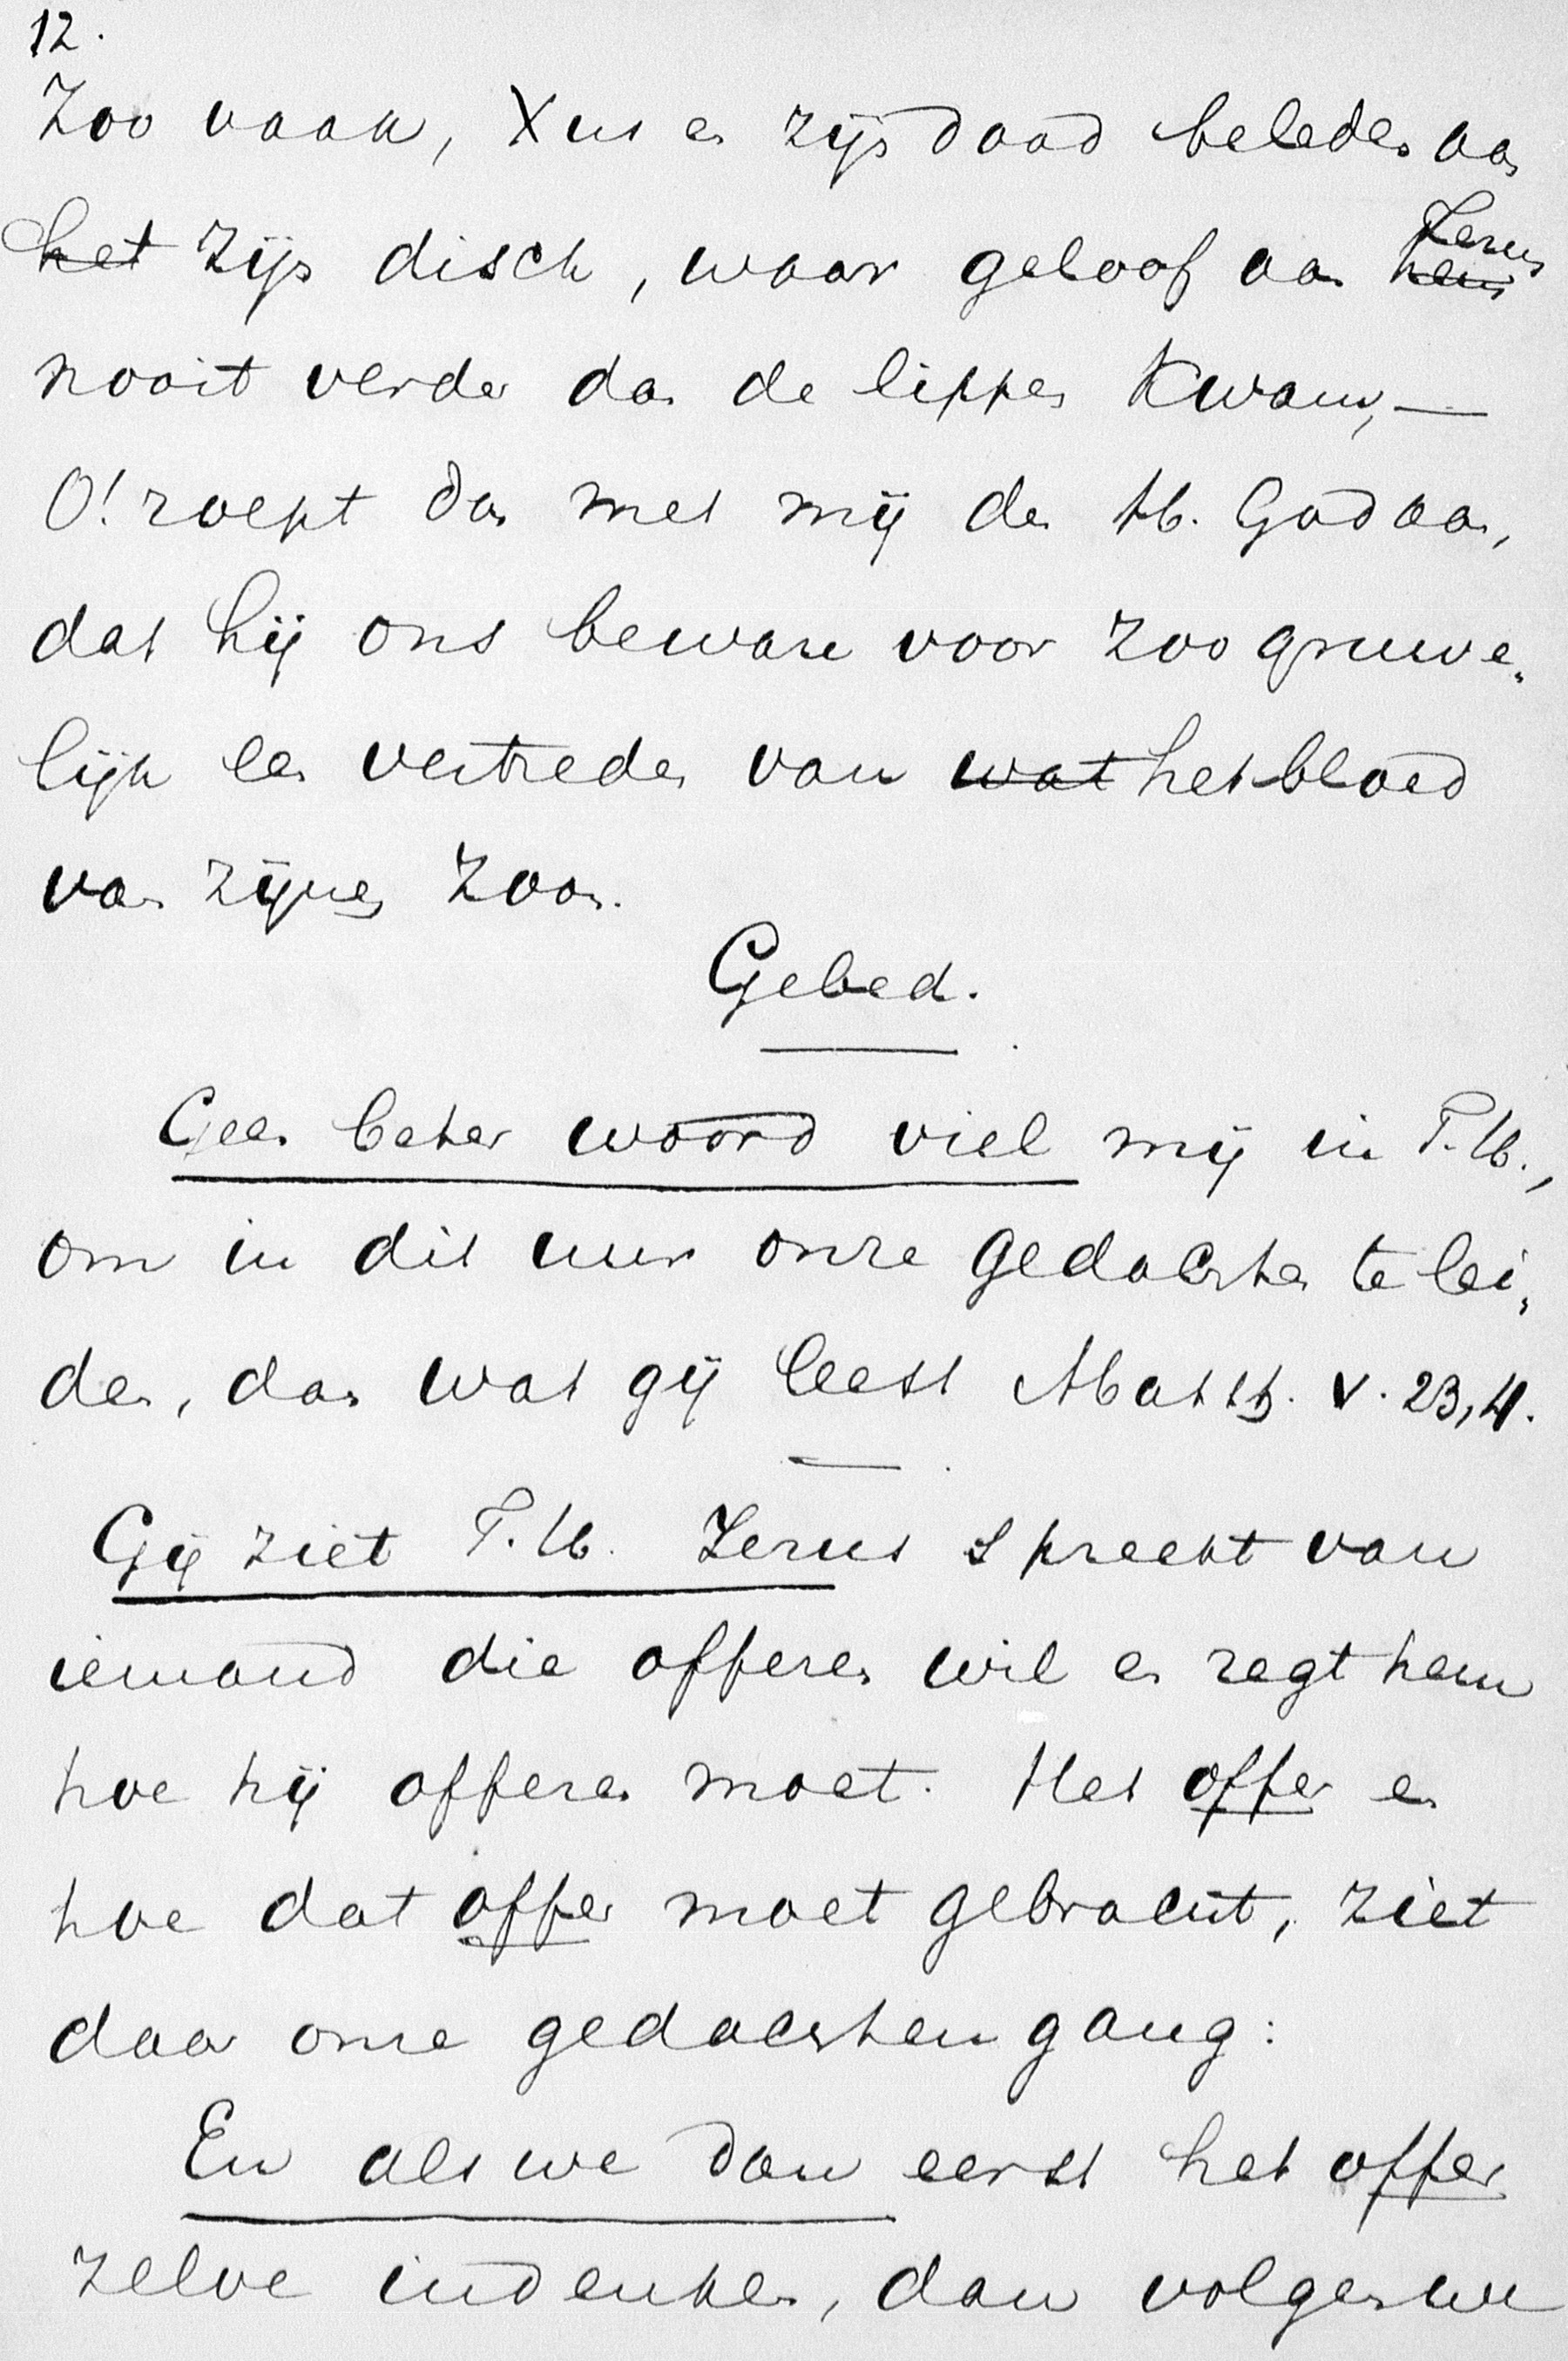 12.
Zoo vaak, Xus en zijn dood beleden aan
het zijn disch, waar geloof aan hem Jezus
nooit verder dan de lippen kwam, —
O! roept dan met mij den H. God aan,
dat hij ons beware voor zoo gruwe-
lijk een vertreden van wat het bloed
van zijnen Zoon.
Gebed.
Geen beter woord viel mij in T. H.,
om in dit uur onze gedachten te lei-
den, dan wat gij leest Matth. V. 23, 4.
Gij ziet T. H. Jezus spreekt van
iemand die offeren wil en zegt hem
hoe hij offeren moet. Het offer en
hoe dat offer moet gebracht, ziet
daar onze gedachtengang:
En als we dan eerst het offer
zelve indenken, dan volgen we